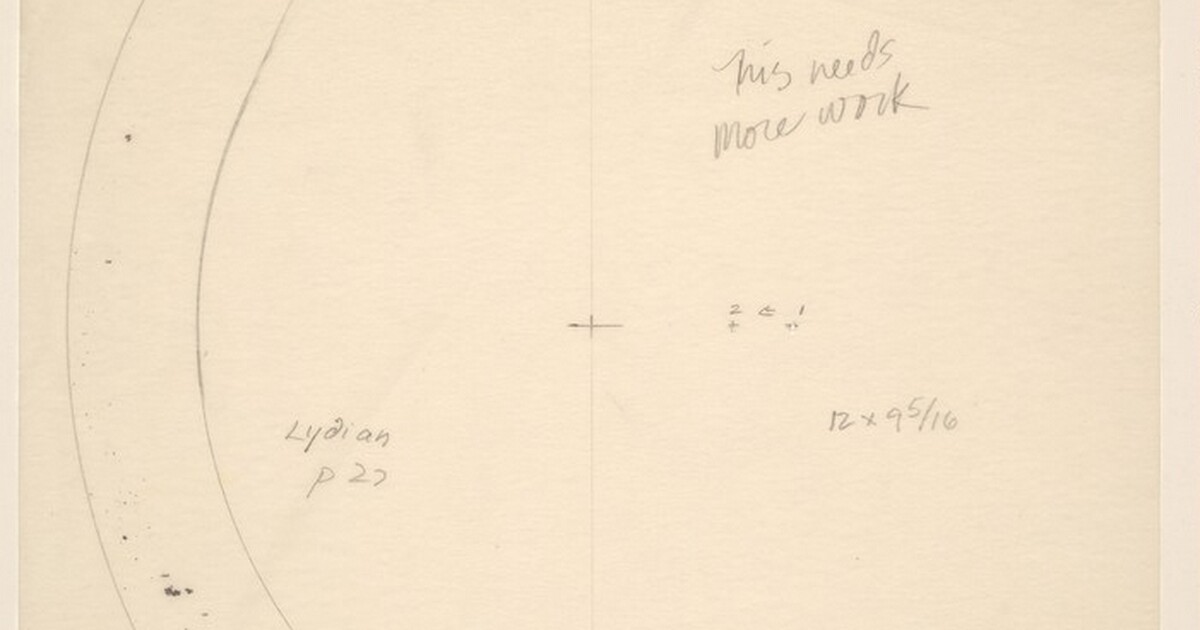 This needs
more work
2 ← 1
12 x 9 5/16
Lydian
p 27